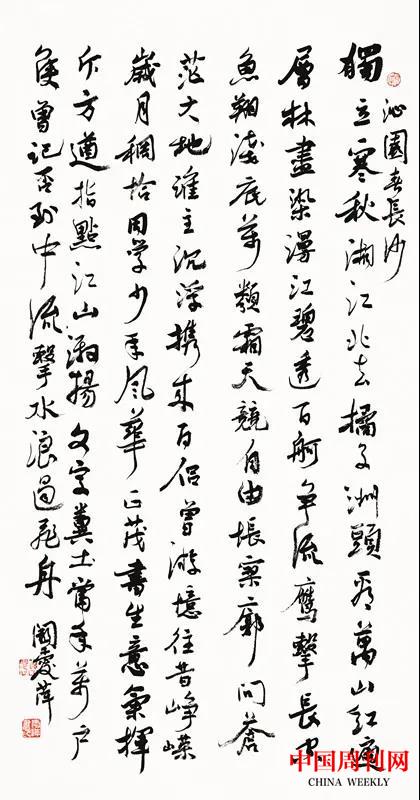 沁園春長沙
獨立寒秋湘江北去橘子洲頭看萬山紅遍
層林盡染漫江碧透百舸争流鷹擊長空
魚翔淺底萬類霜天競自由悵寥廓問蒼
茫大地誰主沉浮携來百侣曾游憶往昔崢嶸
歲月稠恰同學少年風華正茂書生意氣揮
斥方遒指點江山激揚文字糞土當年萬户
侯曾記否到中流擊水浪遏飛舟
愛萍
中国周刊网
CHINA WEEKLY